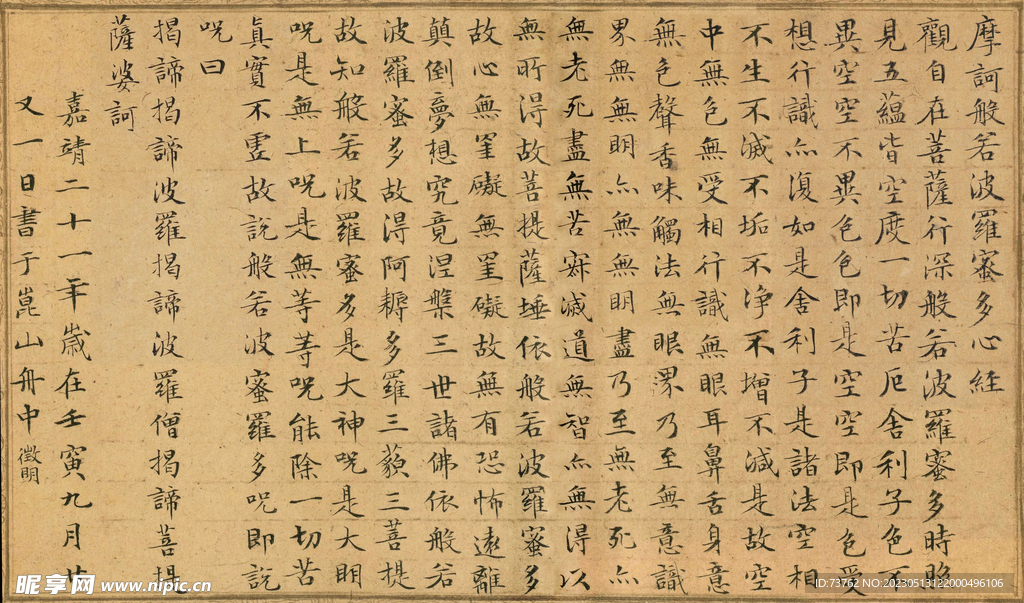 摩訶般若波羅蜜多心経
觀自在菩薩行深般若波羅蜜多時照
見五蘊皆空度一切苦厄舍利子色不
異空空不異色色即是空空即是色受
想行識亦復如是舍利子是諸法空相
不生不滅不垢不淨不增不減是故空
中無色無受相行識無眼耳鼻舌身意
無色聲香味觸法無眼界乃至無意識
界無無明亦無無明盡乃至無老死亦
無老死盡無苦寂滅道無智亦無得以
無所得故菩提薩埵依般若波羅蜜多
故心無罣礙無罣礙故無有恐怖遠離
顛倒夢想究竟涅槃三世諸佛依般若
波羅蜜多故得阿耨多羅三藐三菩提
故知般若波羅蜜多是大神咒是大明
咒是無上咒是無等等咒能除一切苦
真實不虛故說般若波蜜羅多咒即說
咒曰
揭諦揭諦波羅揭諦波羅僧揭諦菩提
薩婆訶
嘉靖二十一年歲在壬寅九月廿
又一日書于崑山舟中 徵明
昵享网 www.nipic.cn
ID:73762 NO:20230513122000496106